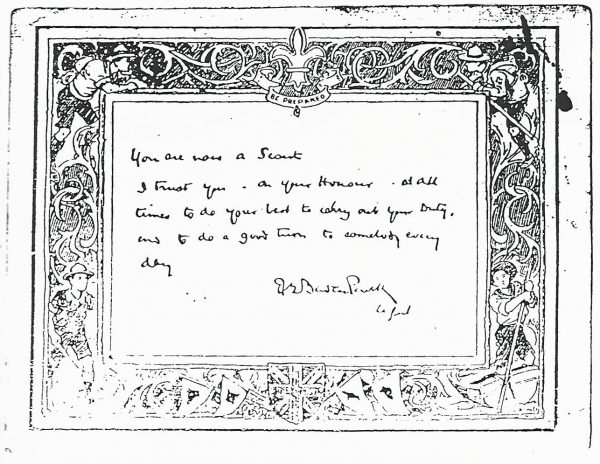 BE PREPARED
You are now a Scout
I trust you - on your Honour - at all
times to do your best to carry out your Duty,
and to do a good turn to somebody every
day